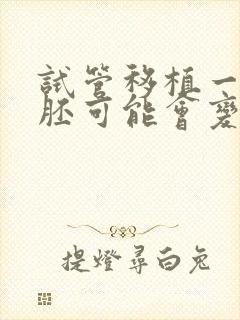 試管移植一
胚可能會變
提燈尋白兔